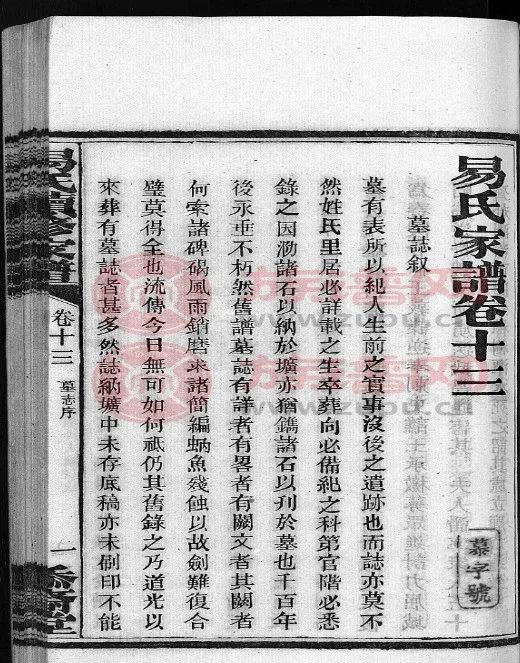 易氏家譜卷十三
慕字號
墓誌叙
墓有表所以紀人生前之實事沒後之遺跡也而誌亦莫不
然姓氏里居必詳載之生卒葬向必備紀之科第官階必悉
錄之因泐諸石以納於壙亦猶鐫諸石以刊於墓也千百年
後永垂不朽然舊譜墓誌有詳者有畧者有闕文者其闕者
何索諸碑碣風雨銷磨求諸簡編蝸魚殘蝕以故劍難復合
璧莫得全也流傳今日無可如何祇仍其舊錄之乃道光以
來葬有墓誌者甚多然誌納壙中未存底稿亦未刷印不能
易氏續修家譜 卷十三 墓志序 一
族譜网
www.zupu.cn